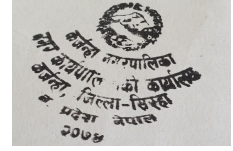 कर्जन्हा नगरपालिका
नगर कार्यपालिकाको कार्यालय
कर्जन्हा, जिल्ला-सिरहा
प्रदेश नेपाल
२०७४